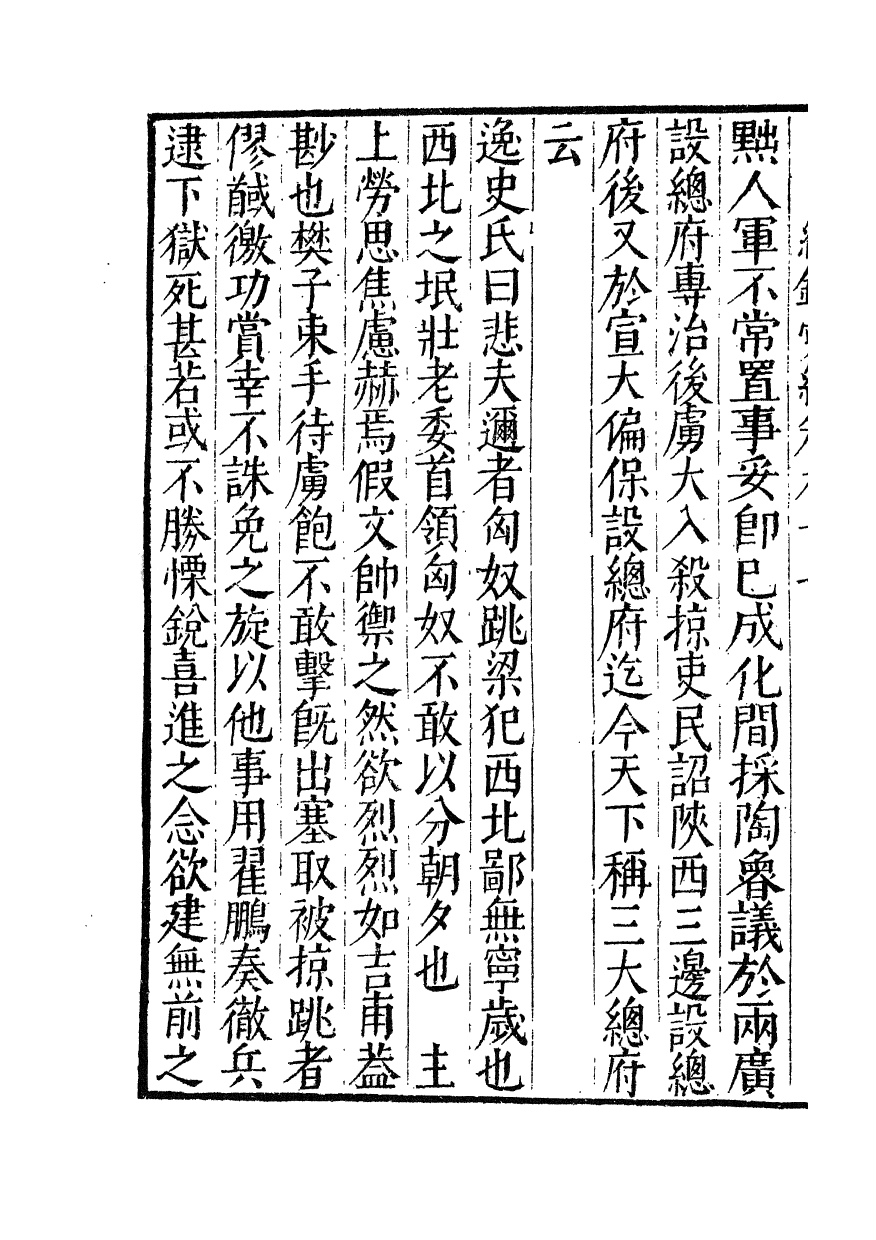 㸃人軍不常置事妥卽已成化間採陶魯議於兩廣
設總府專治後虜大入殺掠吏民詔陝西三邊設總
府後又於宣大偏保設總府迄今天下稱三大總府
云
逸史氏曰悲夫邇者匈奴跳梁犯西北鄙無寧歲也
西北之垊壯老委首領匈奴不敢以分朝夕也　主
上勞思焦慮赫焉假文帥禦之然欲烈烈如吉甫葢
尠也樊子束手待虜飽不敢擊旣出塞取被掠跳者
僇馘徼功賞幸不誅免之旋以他事用翟鵬奏徹兵
逮下獄死甚若或不勝慄銳喜進之念欲建無前之